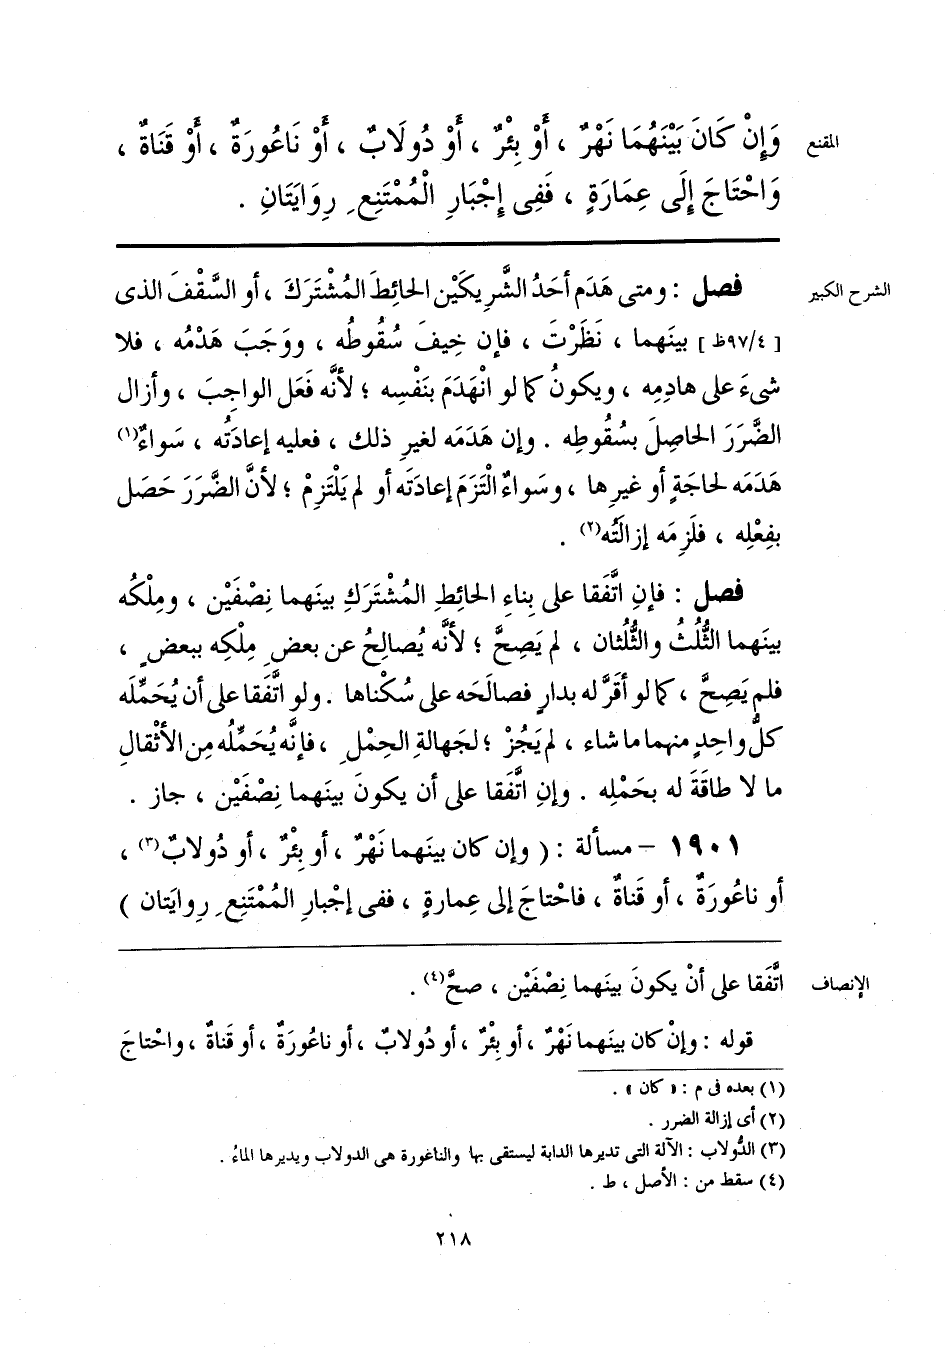 المقنع
وَإِنْ كَانَ بَيْنَهُمَا نَهْرٌ ، أَوْ بِئْرٌ ، أَوْ دُولَابٌ ، أَوْ نَاعُورَةٌ ، أَوْ قَنَاةٌ ،
وَاحْتَاجَ إِلَى عِمَارَةٍ ، فَفِى إِجْبَارِ الْمُمْتَنِعِ رِوَايَتَانِ .
الشرح الكبير
فصل : ومتى هَدَم أحَدُ الشَّرِيكَيْن الحائِطَ المُشْتَرَكَ ، أو السَّقْفَ الذى
[ ٤/٩٧ظ ] بينَهما ، نَظَرْتَ ، فإن خِيفَ سُقُوطُه ، ووَجَبَ هَدْمُه ، فلا
شىءَ على هادِمِه ، ويكونُ كما لو انْهَدَمَ بنَفْسِه ؛ لأنَّه فَعَل الواجِبَ ، وأزال
الضَّرَرَ الحاصِلَ بسُقُوطِه . وإن هَدَمَه لغيرِ ذلك ، فعليه إعادَتُه ، سَواءٌ(١)
هَدَمَه لحاجَةٍ أو غيرِها ، وسَواءٌ الْتَزَمَ إعادَتَه أو لم يَلْتَزِمْ ؛ لأنَّ الضَّرَرَ حَصَل
بفِعْلِه ، فلَزِمَه إزالَتُه(٢) .
فصل : فإنِ اتَّفَقا على بِناءِ الحائِطِ المُشْتَرَكِ بينَهما نِصْفَيْن ، ومِلْكُه
بينَهما الثُّلُثُ والثُّلُثان ، لم يَصِحَّ ؛ لأنَّه يُصالِحُ عن بعضِ مِلْكِه ببعضٍ ،
فلم يَصِحَّ ، كما لو أقَرَّ له بدارٍ فصالَحَه على سُكْناها . ولو اتَّفَقا على أن يُحَمِّلَه
كلُّ واحِدٍ منهما ما شاء ، لم يَجُزْ ؛ لجَهالةِ الحِمْلِ ، فإنَّه يُحَمِّلُه مِن الأثْقالِ
ما لا طاقَةَ له بحَمْلِه . وإنِ اتَّفَقا على أن يكونَ بينَهما نِصْفَيْن ، جاز .
١٩٠١ – مسألة : ( وإن كان بينَهما نَهْرٌ ، أو بِئْرٌ ، أو دُولابٌ(٣) ،
أو ناعُورَةٌ ، أو قَناةٌ ، فاحْتاجَ إلى عِمارةٍ ، ففى إجْبارِ المُمْتَنِعِ رِوايَتان )
الإنصاف
اتَّفَقا على أنْ يكونَ بينَهما نِصْفَيْن ، صحَّ(٤) .
قوله : وإنْ كان بينَهما نَهْرٌ ، أو بِئْرٌ ، أو دُولابٌ ، أو ناعُورَةٌ ، أو قَناةٌ ، واحْتاجَ
(١) بعده فى م : « كان » .
(٢) أى إزالة الضرر .
(٣) الدُّولاب : الآلة التى تديرها الدابة ليستقى بها والناغورة هى الدولاب ويديرها الماءُ .
(٤) سقط من : الأصل ، ط .
٢١٨